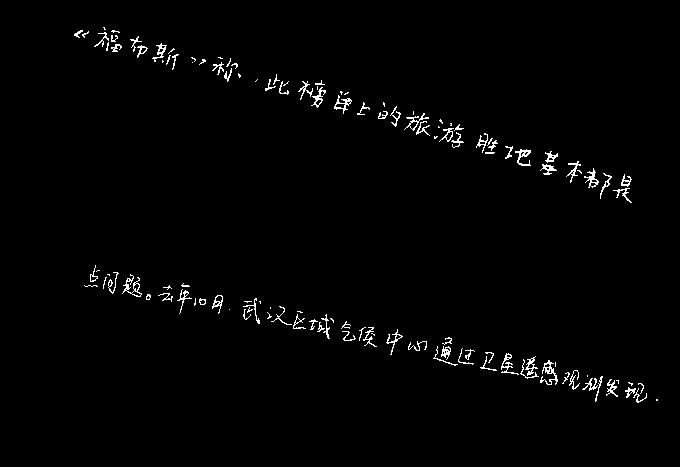 《福布斯》称,此榜单上的旅游胜地基本都是
点问题。去年10月,武汉区域气候中心通过卫星遥感观测发现,